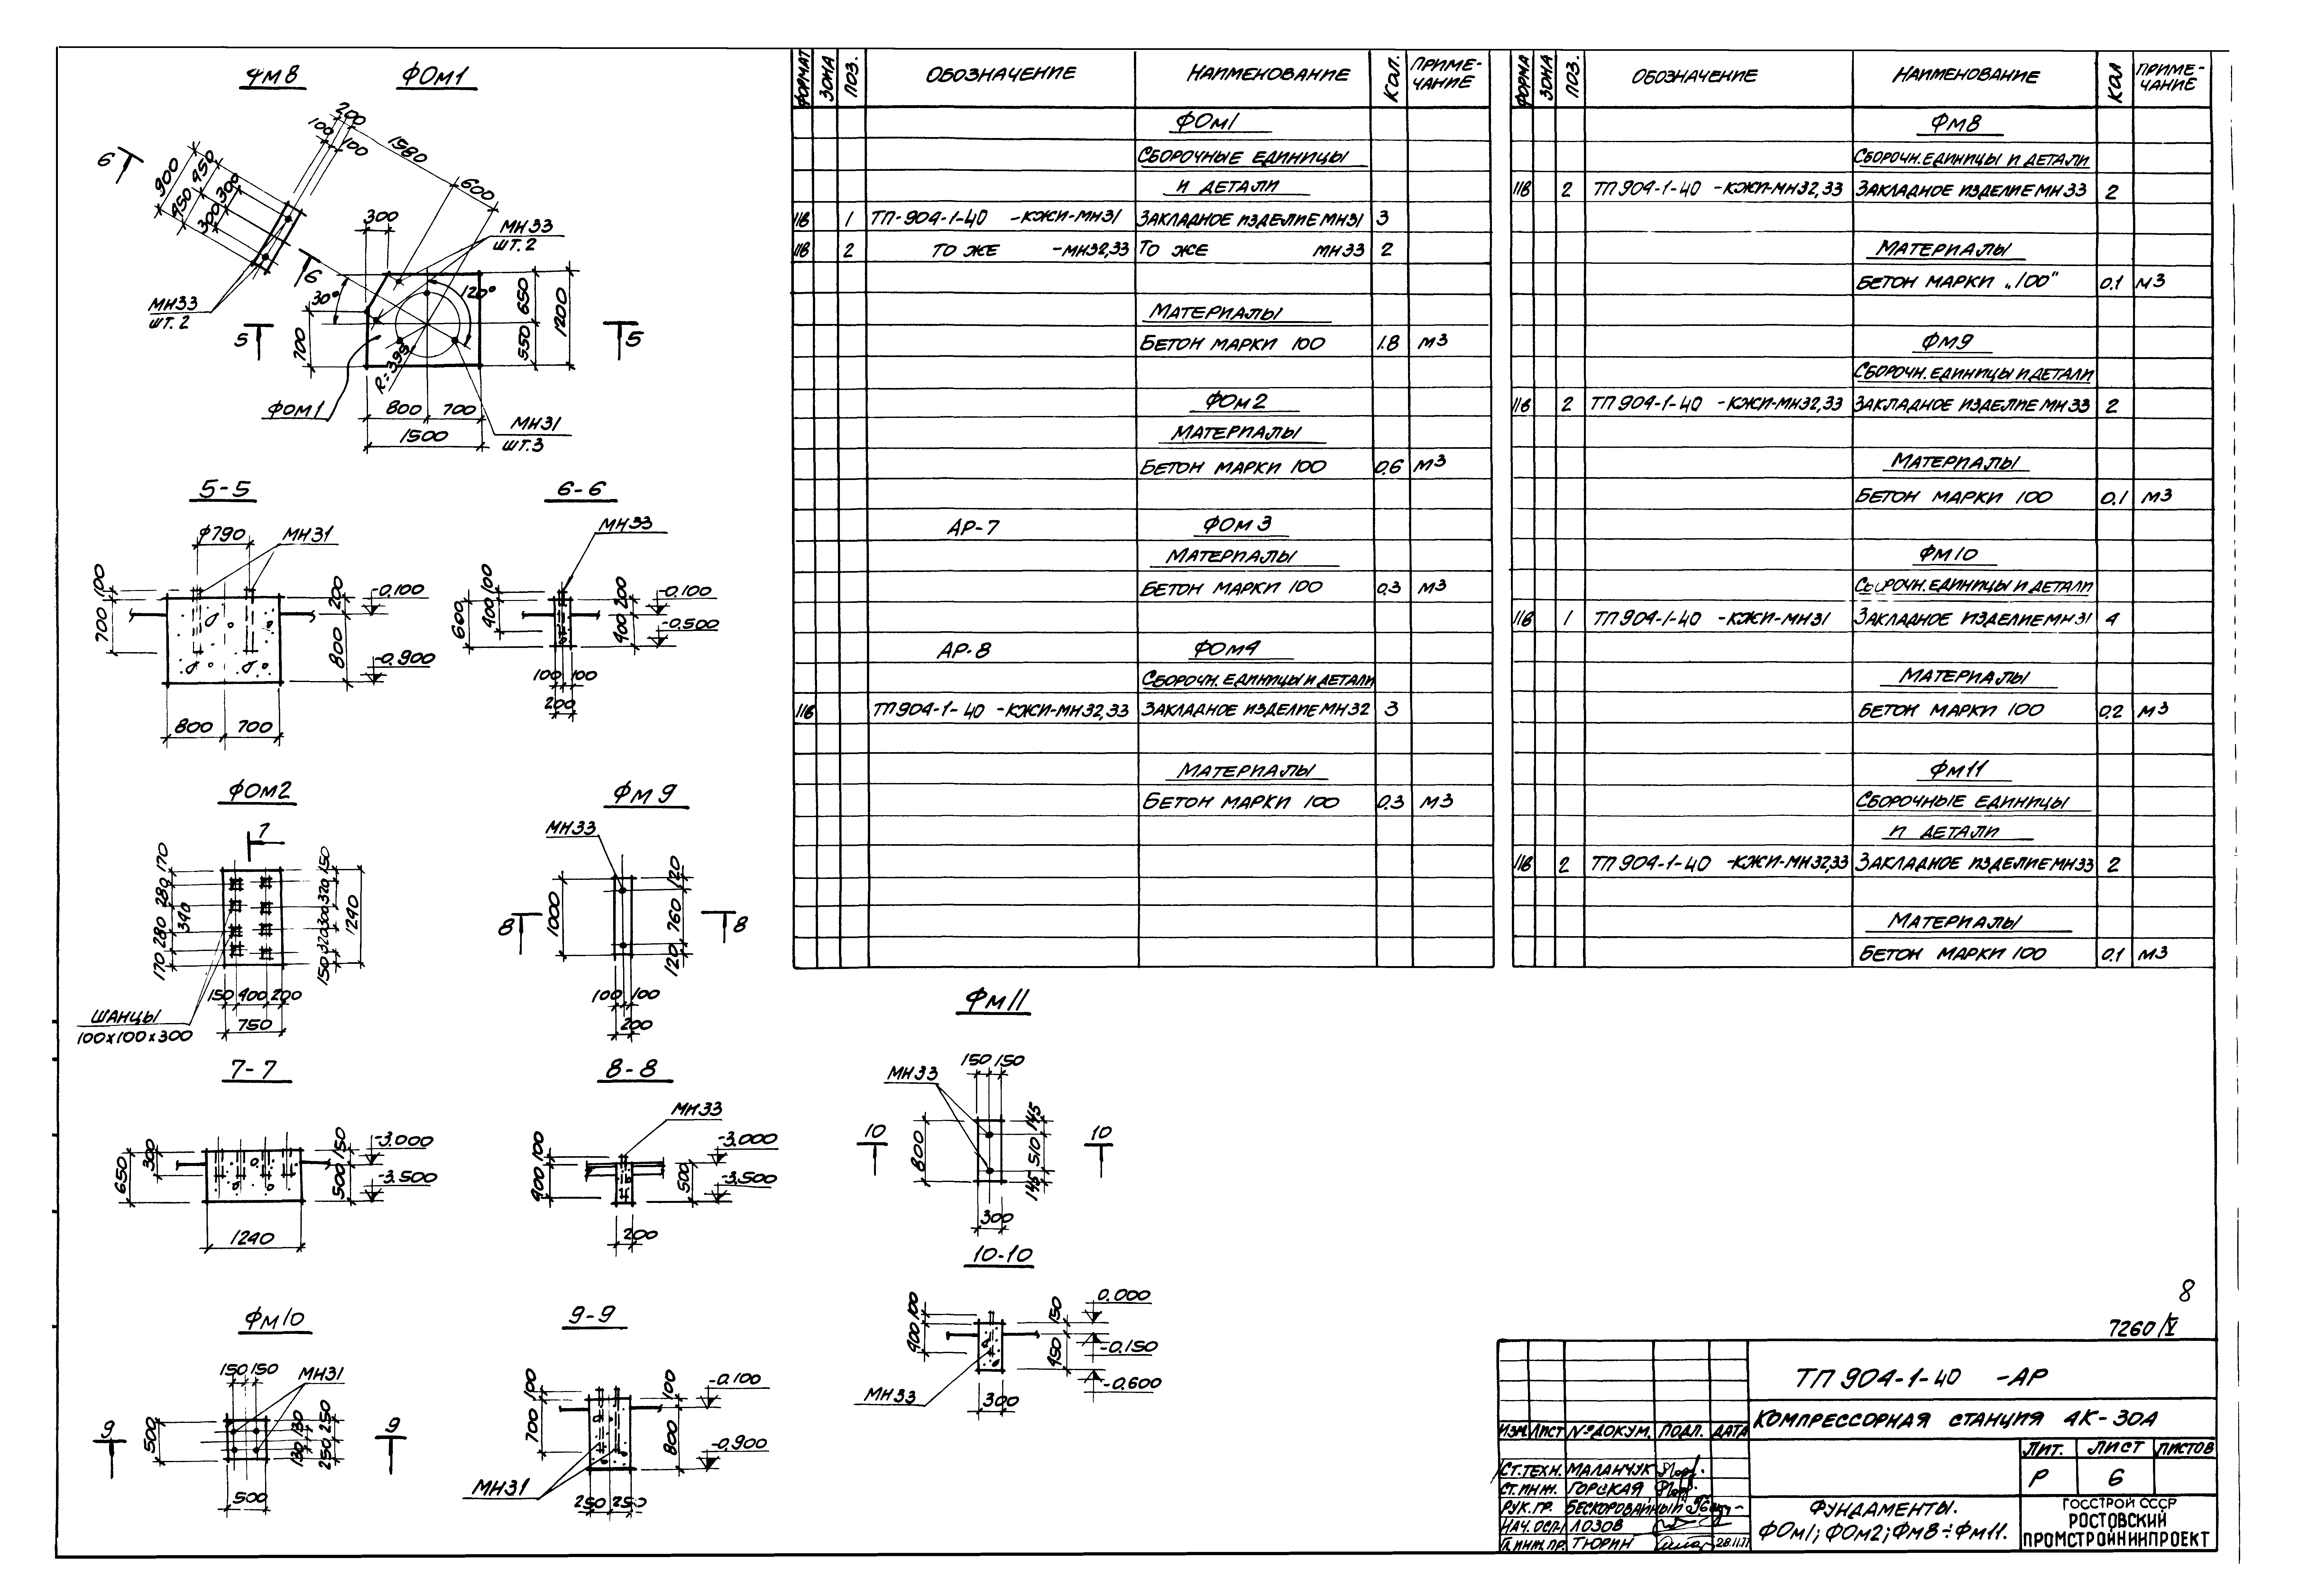 ФМ8
ФОМ1
200
100
100
1580
600
6
900
450
450
300
300
300
МН33
шт.2
МН33
шт.2
6
30°
120°
5
5
700
650
550
1200
R=395
ФОМ1
800
700
1500
МН31
шт.3
5-5
Ф790
МН31
100
700
200
800
-0.100
-0.900
800
700
6-6
МН33
600
400
100
200
400
-0.100
-0.500
100
100
200
ФОМ2
7
170
280
340
280
170
150
320
300
320
150
1240
150
400
200
750
ШАНЦЫ
100х100х300
ФМ9
МН33
8
8
1000
120
760
120
100
100
200
7-7
650
300
150
500
-3.000
-3.500
1240
8-8
МН33
400
100
500
-3.000
-3.500
200
ФМ10
150
150
МН31
9
9
500
130
130
250
250
500
9-9
100
700
100
800
-0.100
-0.900
МН31
250
250
ФМ11
150
150
МН33
10
10
800
145
510
145
300
10-10
100
400
150
450
0.000
-0.150
-0.600
МН33
300
ФОРМАТ ЗОНА ПОЗ. ОБОЗНАЧЕНИЕ НАИМЕНОВАНИЕ КОЛ. ПРИМЕ-ЧАНИЕ
ФОМ1
СБОРОЧНЫЕ ЕДИНИЦЫ
И ДЕТАЛИ
11В 1 ТП-904-1-40 -КЖИ-МН31 ЗАКЛАДНОЕ ИЗДЕЛИЕ МН31 3
11В 2 ТО ЖЕ -МН32,33 ТО ЖЕ МН33 2
МАТЕРИАЛЫ
БЕТОН МАРКИ 100 1.8 М3
ФОМ2
МАТЕРИАЛЫ
БЕТОН МАРКИ 100 0.6 М3
АР-7 ФОМ3
МАТЕРИАЛЫ
БЕТОН МАРКИ 100 0.3 М3
АР-8 ФОМ4
СБОРОЧН. ЕДИНИЦЫ И ДЕТАЛИ
11В ТП904-1-40 -КЖИ-МН32,33 ЗАКЛАДНОЕ ИЗДЕЛИЕ МН32 3
МАТЕРИАЛЫ
БЕТОН МАРКИ 100 0.3 М3
ФОРМА ЗОНА ПОЗ. ОБОЗНАЧЕНИЕ НАИМЕНОВАНИЕ КОЛ ПРИМЕ-ЧАНИЕ
ФМ8
СБОРОЧН. ЕДИНИЦЫ И ДЕТАЛИ
11В 2 ТП904-1-40 -КЖИ-МН32,33 ЗАКЛАДНОЕ ИЗДЕЛИЕ МН33 2
МАТЕРИАЛЫ
БЕТОН МАРКИ „100" 0.1 М3
ФМ9
СБОРОЧН. ЕДИНИЦЫ И ДЕТАЛИ
11В 2 ТП904-1-40 -КЖИ-МН32,33 ЗАКЛАДНОЕ ИЗДЕЛИЕ МН33 2
МАТЕРИАЛЫ
БЕТОН МАРКИ 100 0.1 М3
ФМ10
СБОРОЧН. ЕДИНИЦЫ И ДЕТАЛИ
11В 1 ТП904-1-40 -КЖИ-МН31 ЗАКЛАДНОЕ ИЗДЕЛИЕ МН31 4
МАТЕРИАЛЫ
БЕТОН МАРКИ 100 0.2 М3
ФМ11
СБОРОЧНЫЕ ЕДИНИЦЫ
И ДЕТАЛИ
11В 2 ТП904-1-40 -КЖИ-МН32,33 ЗАКЛАДНОЕ ИЗДЕЛИЕ МН33 2
МАТЕРИАЛЫ
БЕТОН МАРКИ 100 0.1 М3
8
7260/V
ТП 904-1-40 -АР
КОМПРЕССОРНАЯ СТАНЦИЯ 4К-30А
ИЗМ. ЛИСТ №ДОКУМ. ПОДП. ДАТА
СТ.ТЕХН. МАЛАНЧУК
СТ.ИНЖ. ГОРСКАЯ
РУК.ГР. БЕСКОРОВАЙНЫЙ
НАЧ.ОСП1 ЛОЗОВ
ГЛ.ИНЖ.ПР. ТЮРИН 28.11.77
ЛИТ. ЛИСТ ЛИСТОВ
Р 6
ФУНДАМЕНТЫ.
ФОМ1; ФОМ2; ФМ8÷ФМ11.
ГОССТРОЙ СССР
РОСТОВСКИЙ
ПРОМСТРОЙНИИПРОЕКТ